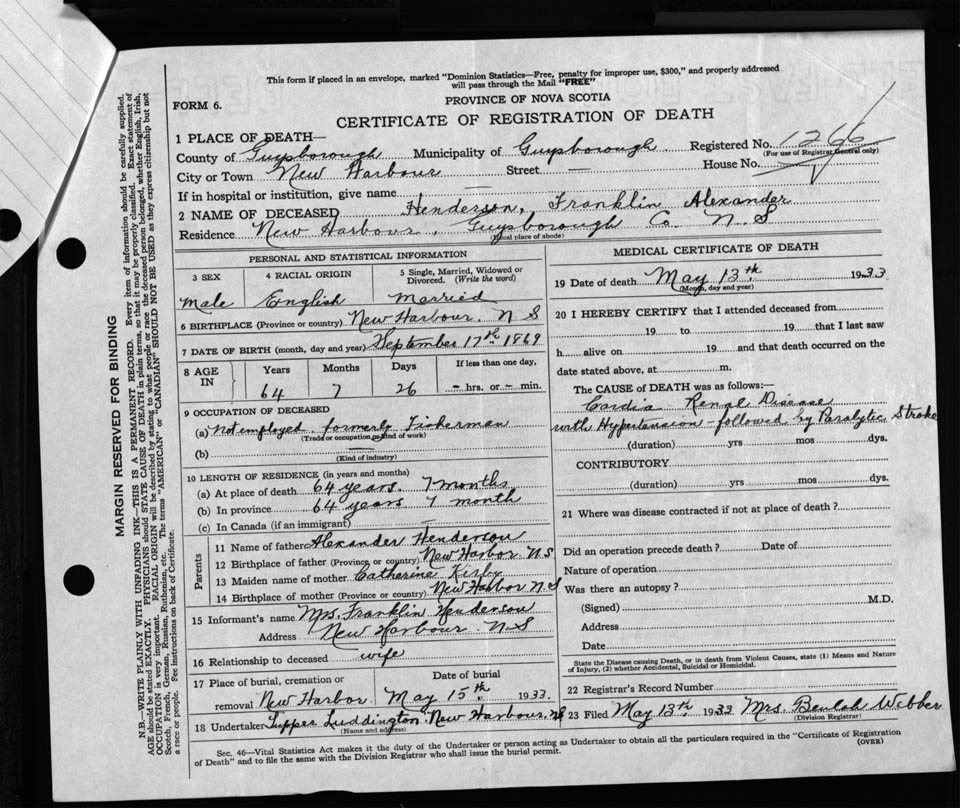 This form if placed in an envelope, marked "Dominion Statistics—Free, penalty for improper use, $300," and properly addressed
will pass through the Mail "FREE"
FORM 6.
PROVINCE OF NOVA SCOTIA
CERTIFICATE OF REGISTRATION OF DEATH
1 PLACE OF DEATH—
Registered No. 1266
(For use of Registrar General only)
County of Guysborough Municipality of Guysborough
City or Town New Harbour Street — House No.
If in hospital or institution, give name —
2 NAME OF DECEASED Henderson, Franklin Alexander
Residence New Harbour, Guysborough Co. N. S
(Usual place of abode)
PERSONAL AND STATISTICAL INFORMATION
3 SEX
4 RACIAL ORIGIN
5 Single, Married, Widowed or
Divorced. (Write the word)
Male English Married
6 BIRTHPLACE (Province or country) New Harbour. N S
7 DATE OF BIRTH (month, day and year) September 17th 1869
8 AGE
IN
Years Months Days If less than one day,
64 7 26 – hrs. or – min.
9 OCCUPATION OF DECEASED
(a) Not employed formerly Fisherman
(Trade or occupation or kind of work)
(b)
(Kind of industry)
10 LENGTH OF RESIDENCE (in years and months)
(a) At place of death 64 years 7 months
(b) In province 64 years 7 month
(c) In Canada (if an immigrant)
Parents
11 Name of father Alexander Henderson
12 Birthplace of father (Province or country) New Harbor N.S
13 Maiden name of mother Catharine Kirby
14 Birthplace of mother (Province or country) New Harbor N.S
15 Informant's name Mrs. Franklin Henderson
Address New Harbour N S
16 Relationship to deceased wife
17 Place of burial, cremation or
removal New Harbor
Date of burial
May 15th 1933.
18 Undertaker Tupper Luddington New Harbour. NS
(Name and address)
MEDICAL CERTIFICATE OF DEATH
19 Date of death May 13th 1933
(Month, day and year)
20 I HEREBY CERTIFY that I attended deceased from
19 to 19 that I last saw
h alive on 19 and that death occurred on the
date stated above, at m.
The CAUSE of DEATH was as follows:—
Cardia Renal Disease
with Hypertension – followed by Paralytic Stroke
(duration) yrs mos dys.
CONTRIBUTORY
(duration) yrs mos dys.
21 Where was disease contracted if not at place of death?
Did an operation precede death? Date of
Nature of operation
Was there an autopsy?
(Signed) M.D.
Address
Date
State the Disease causing Death, or in death from Violent Causes, state (1) Means and Nature
of Injury, (2) whether Accidental, Suicidal or Homicidal.
22 Registrar's Record Number
23 Filed May 13th 1933 Mrs. Beulah Webber
(Division Registrar)
Sec. 46—Vital Statistics Act makes it the duty of the Undertaker or person acting as Undertaker to obtain all the particulars required in the "Certificate of Registration
of Death" and to file the same with the Division Registrar who shall issue the burial permit.
(OVER)
MARGIN RESERVED FOR BINDING
N.B.—WRITE PLAINLY WITH UNFADING INK—THIS IS A PERMANENT RECORD. Every item of information should be carefully supplied.
AGE should be stated EXACTLY. PHYSICIANS should STATE CAUSE OF DEATH in plain terms, so that it may be properly classified. Exact statement of
OCCUPATION is very important. RACIAL ORIGIN will be described by stating to what people or race the deceased person belonged, whether English, Irish,
Scotch, French, German, Russian, Ruthenian, etc. The terms "AMERICAN" or "CANADIAN" SHOULD NOT BE USED as they express citizenship but not
a race or people. See instructions on back of Certificate.